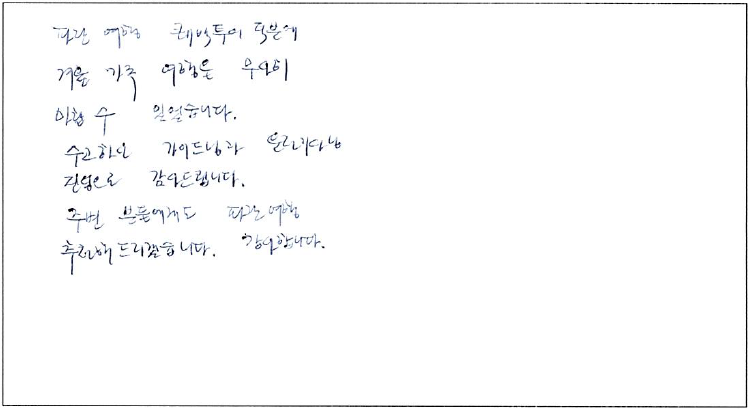 파란 여행 크레박투어 덕분에
겨울 가족 여행을 무사히
마칠 수 있었습니다.
수고하신 가이드님과
진심으로 감사드립니다.
주변 분들에게도 파란여행
추천해드리겠습니다. 감사합니다.